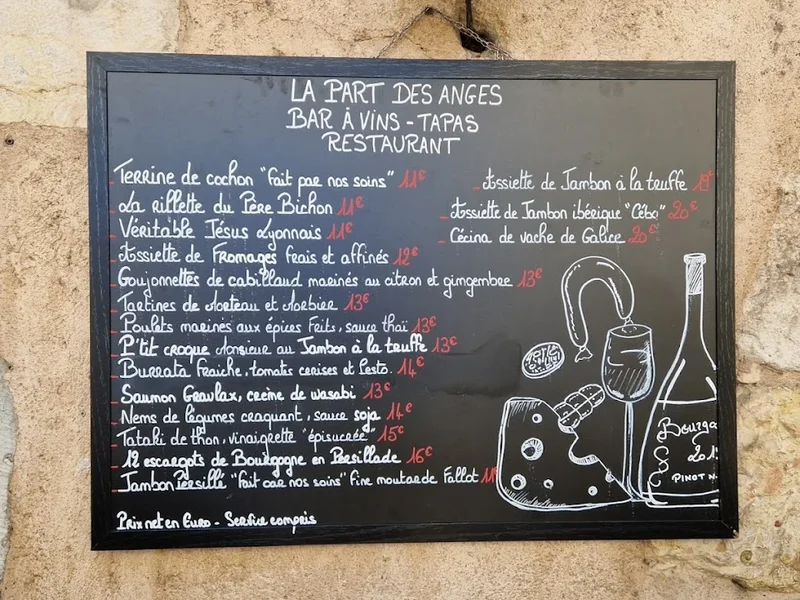 LA PART DES ANGES
BAR À VINS - TAPAS
RESTAURANT
- Terrine de cochon "Fait par nos soins" 11€
- La rillette du Père Bichon 11€
- Véritable Jésus Lyonnais 11€
- Assiette de Fromages frais et affinés 12€
- Goujonnettes de cabillaud marinés au citron et gingembre 13€
- Tartines de Morteau et Morbier 13€
- Poulets marinés aux épices Frits, sauce thaï 13€
- P'tit croque Monsieur au Jambon à la truffe 13€
- Burrata Fraiche, tomates cerises et Pesto. 14€
- Saumon Gravlax, crème de wasabi 13€
- Nems de légumes craquant, sauce soja 14€
- Tataki de thon, vinaigrette "épisucrée" 15€
- 12 escargots de Bourgogne en Persillade 16€
- Jambon Persillé "Fait par nos soins" Fine moutarde Fallot
Prix net en Euro - Service compris
- Assiette de Jambon à la truffe
- Assiette de Jambon ibérique "Cébo" 20€
- Cécina de vache de Galice 20€
PINOT N